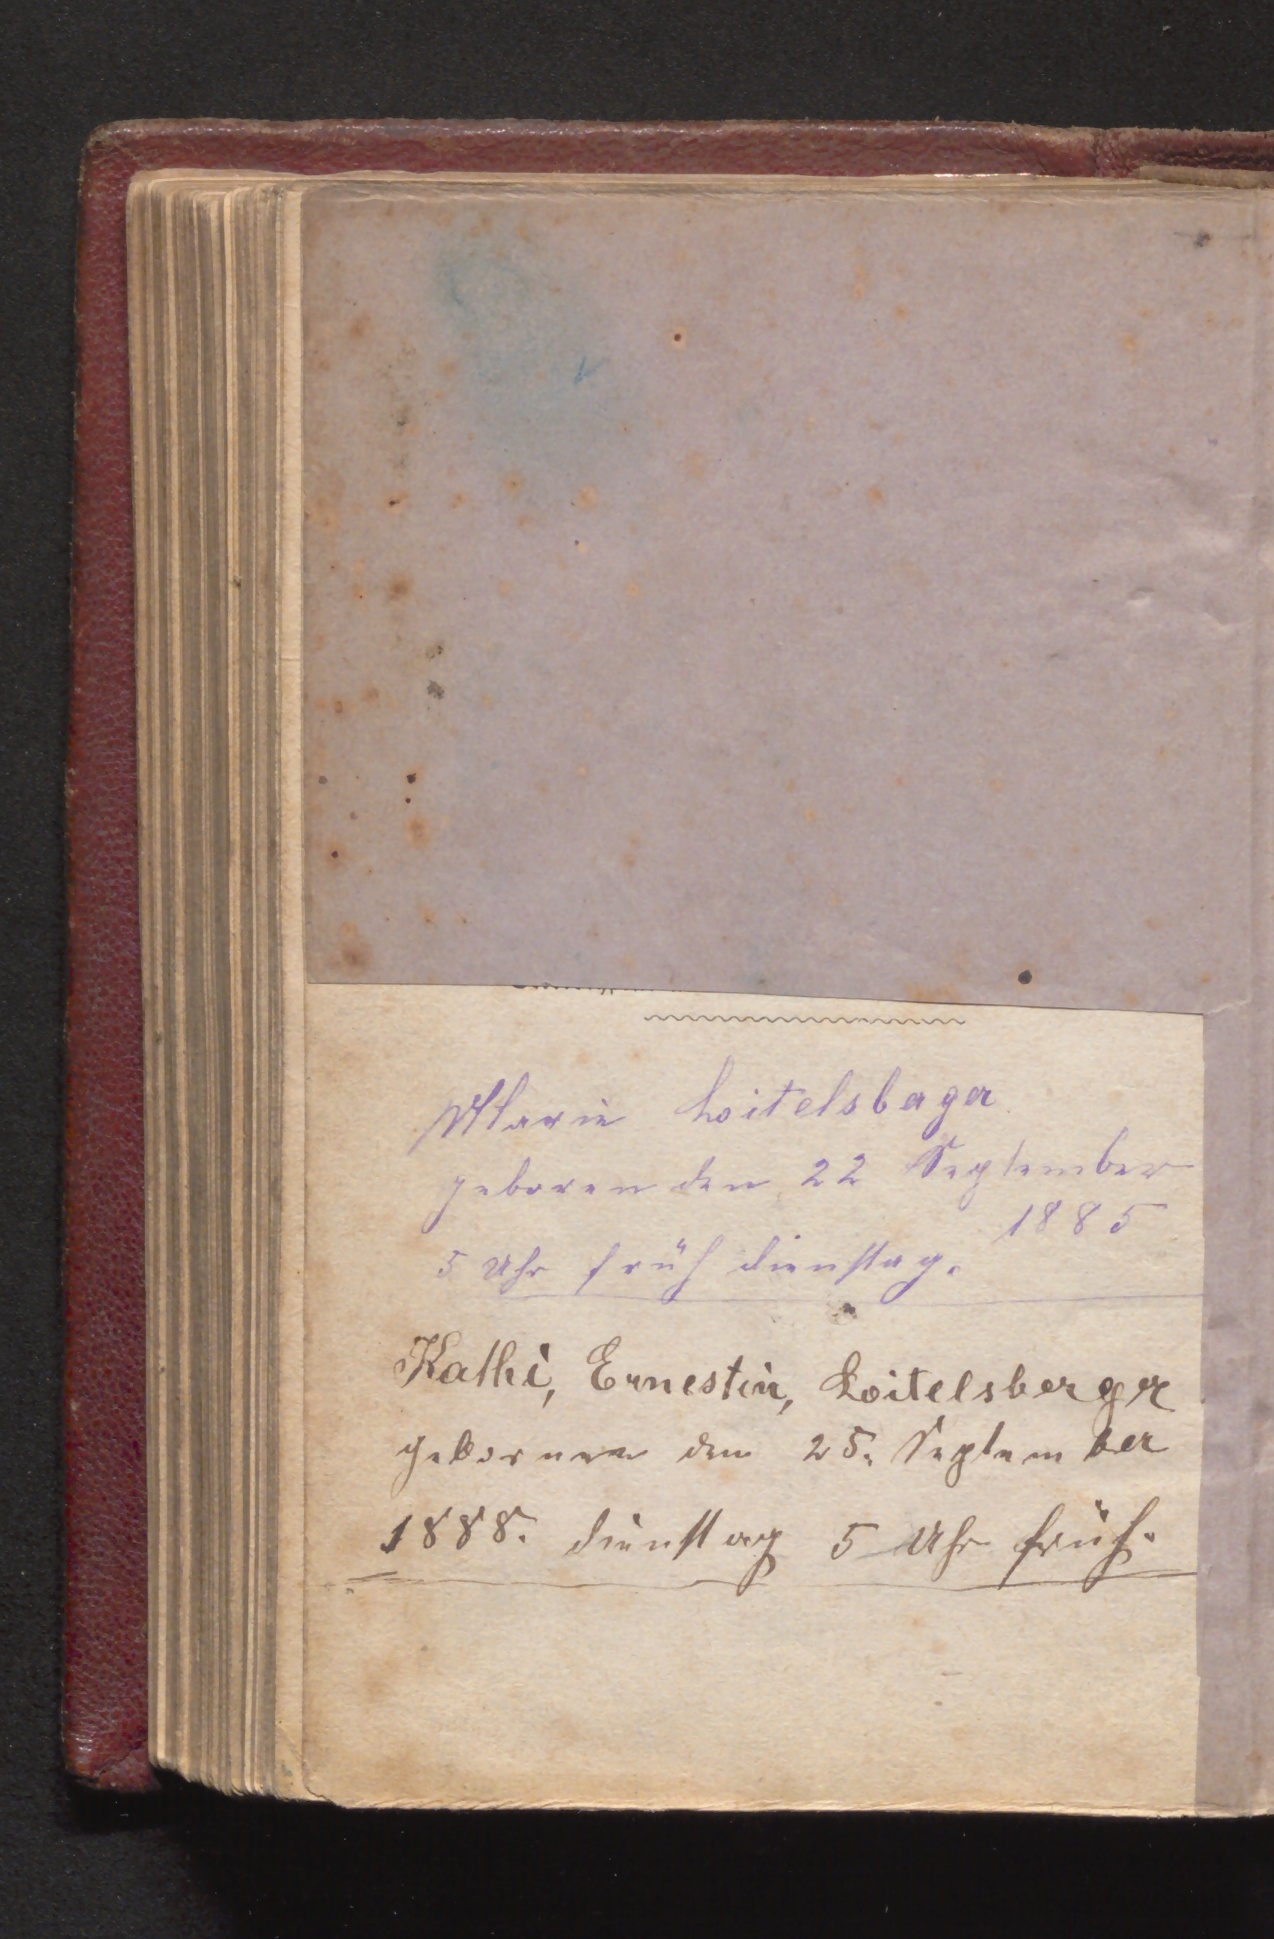 Marie Loitelsbager
geboren den 22 September
1885
5 Uhr früh dienstag.
Kathi, Ernestin, Loitelsberger
geboren den 25. September
1888. dienstag 5 Uhr früh.